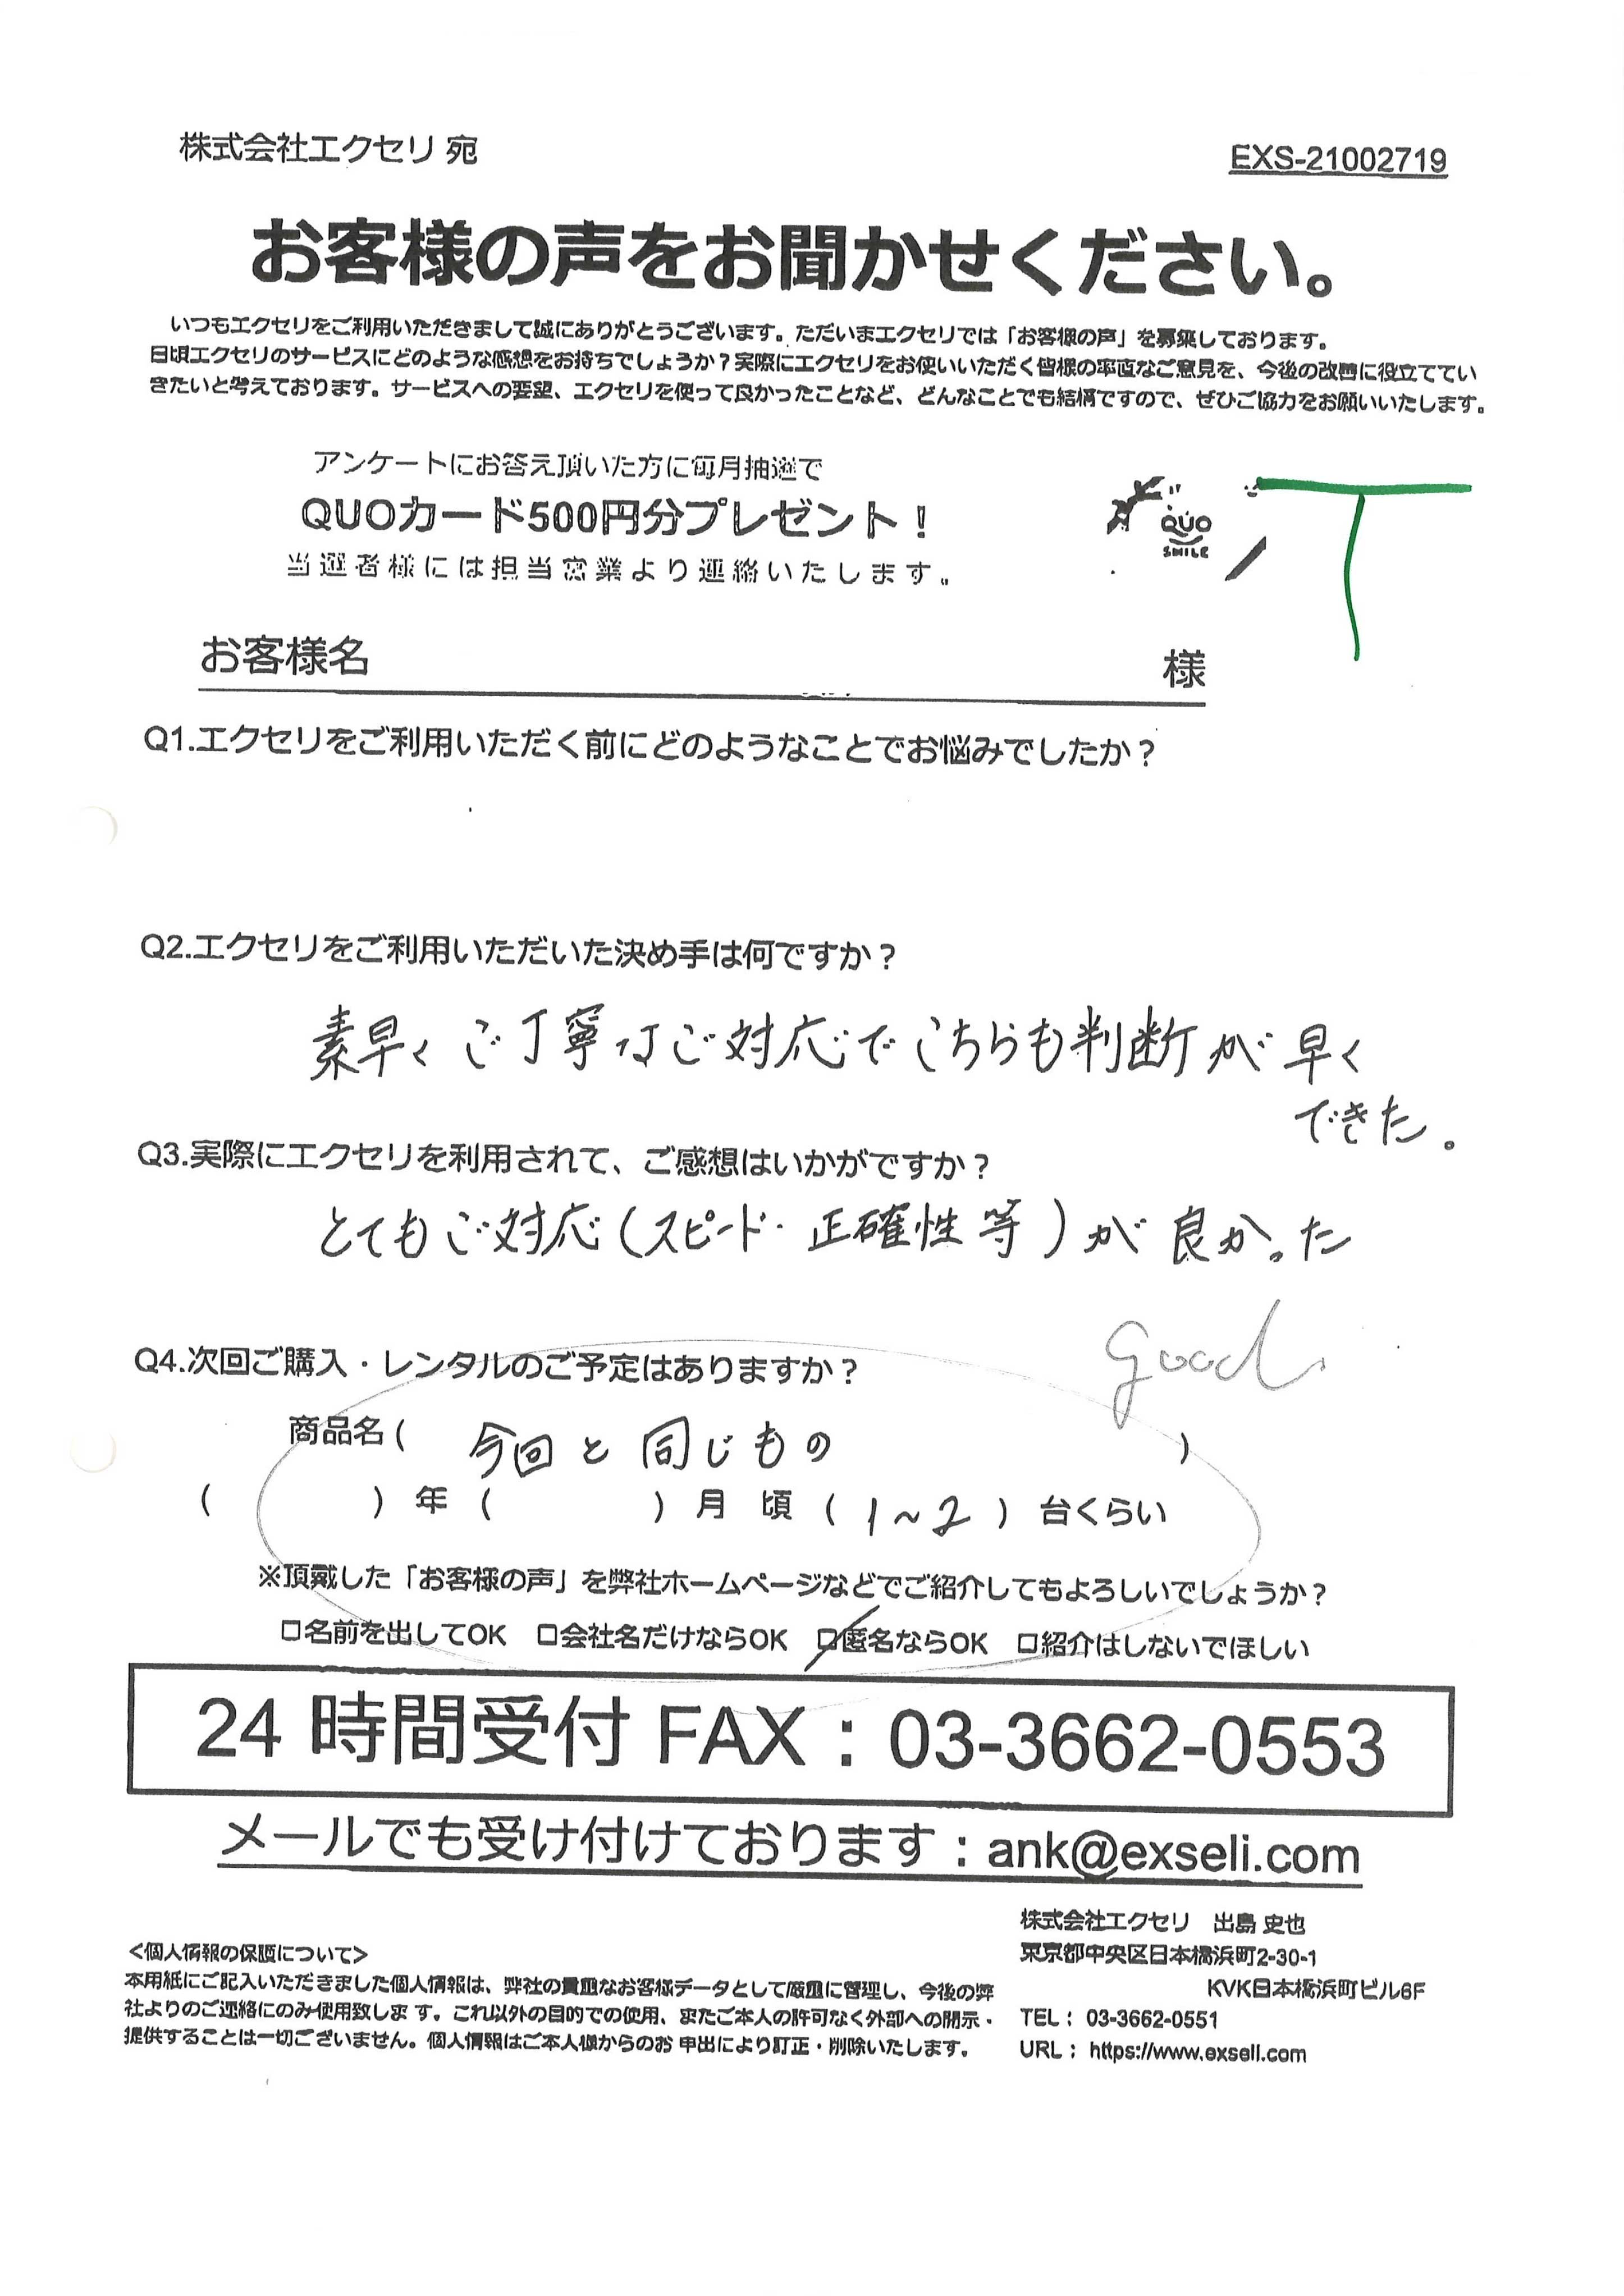 株式会社エクセリ 宛
EXS-21002719
お客様の声をお聞かせください。
いつもエクセリをご利用いただきまして誠にありがとうございます。ただいまエクセリでは「お客様の声」を募集しております。
日頃エクセリのサービスにどのような感想をお持ちでしょうか？実際にエクセリをお使いいただく皆様の率直なご意見を、今後の改善に役立ててい
きたいと考えております。サービスへの要望、エクセリを使って良かったことなど、どんなことでも結構ですので、ぜひご協力をお願いいたします。
アンケートにお答え頂いた方に毎月抽選で
QUOカード500円分プレゼント！
当選者様には担当営業より連絡いたします。
QUO
SMILE
T
お客様名 様
Q1.エクセリをご利用いただく前にどのようなことでお悩みでしたか？
Q2.エクセリをご利用いただいた決め手は何ですか？
素早くご丁寧なご対応でこちらも判断が早く
できた。
Q3.実際にエクセリを利用されて、ご感想はいかがですか？
とてもご対応(スピード・正確性等)が良かった
good
Q4.次回ご購入・レンタルのご予定はありますか？
商品名( 今回と同じもの )
( ) 年 ( ) 月 頃 ( 1~2 ) 台くらい
※頂戴した「お客様の声」を弊社ホームページなどでご紹介してもよろしいでしょうか？
□名前を出してOK □会社名だけならOK □匿名ならOK □紹介はしないでほしい
24 時間受付 FAX：03-3662-0553
メールでも受け付けております：ank@exseli.com
<個人情報の保護について>
本用紙にご記入いただきました個人情報は、弊社の貴重なお客様データとして厳重に管理し、今後の弊
社よりのご連絡にのみ使用致します。これ以外の目的での使用、またご本人の許可なく外部への開示・
提供することは一切ございません。個人情報はご本人様からのお 申出により訂正・削除いたします。
株式会社エクセリ 出島 史也
東京都中央区日本橋浜町2-30-1
KVK日本橋浜町ビル6F
TEL： 03-3662-0551
URL： https://www.exseli.com